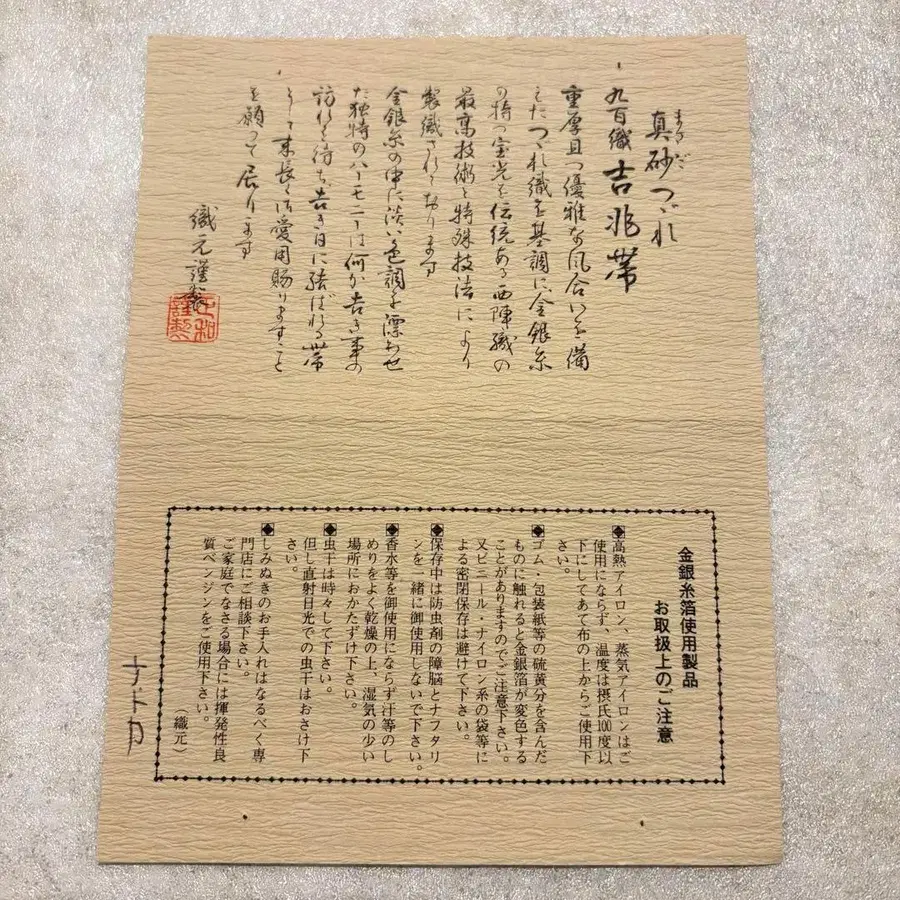 真砂つゞれ
まさご
九百織 吉兆帯
重厚且つ優雅な風合いを備
えたつゞれ織を基調に、金銀糸
の持つ宝光を伝統ある西陣織の
最高技術と特殊技法により
製織されております
金銀糸の中に淡い色調を漂わせ
た独特のハーモニーは何か吉き事の
訪れを待ち、吉き日に結ばれる帯
として末長く御愛用賜りますこと
を願って居ります
織元謹製
金銀糸箔使用製品
お取扱上のご注意
◆高熱アイロン、蒸気アイロンはご
使用にならず、温度は摂氏100度以
下にしてあて布の上からご使用下
さい。
◆ゴム・包装紙等の硫黄分を含んだ
ものに触れると金銀箔が変色する
ことがありますのでご注意下さい。
又ビニール・ナイロン系の袋等に
よる密閉保存は避けて下さい。
◆保存中は防虫剤の障脳とナフタリ
ンを一緒に御使用しないで下さい。
◆香水等を御使用にならず汗等のし
めりをよく乾燥の上、湿気の少い
場所におかたずけ下さい。
◆虫干は時々して下さい。
但し直射日光での虫干はおさけ下
さい。
◆しみぬきのお手入れはなるべく専
門店にご相談下さい。
ご家庭でなさる場合には揮発性良
質ベンジンをご使用下さい。
（織元）